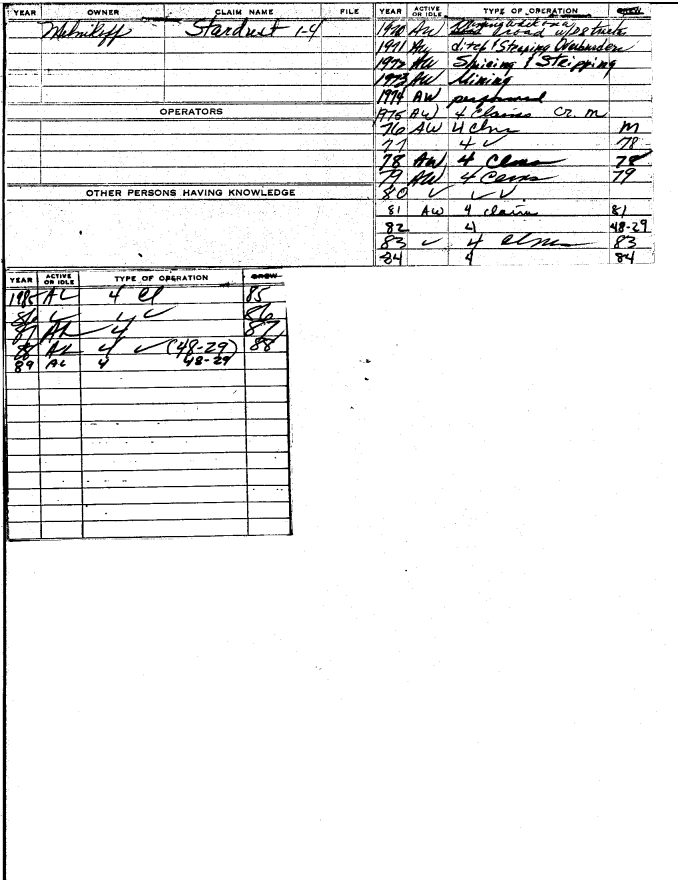 YEAR OWNER CLAIM NAME FILE
Melnikoff Stardust 1-4
OPERATORS
OTHER PERSONS HAVING KNOWLEDGE
YEAR ACTIVE OR IDLE TYPE OF OPERATION CREW
1970 AW road
1971 AW ditch & Straping Overburden
1972 AW Sluicing & Stripping
1973 AW Mining
1974 AW performed
1975 AW 4 Claims Cr. m
76 AW 4 Clms m
77 4 ✓ 78
78 AW 4 Clms 78
79 AW 4 Clms 79
80 ✓ ✓ ✓
81 AW 4 claims 81
82 4 48-29
83 ✓ 4 clms 83
84 4 84
YEAR ACTIVE OR IDLE TYPE OF OPERATION CREW
1985 AL 4 Cl 85
86 ✓ 4 ✓ 86
87 AL 4 87
88 AL 4 ✓ (48-29) 88
89 AL 4 48-29